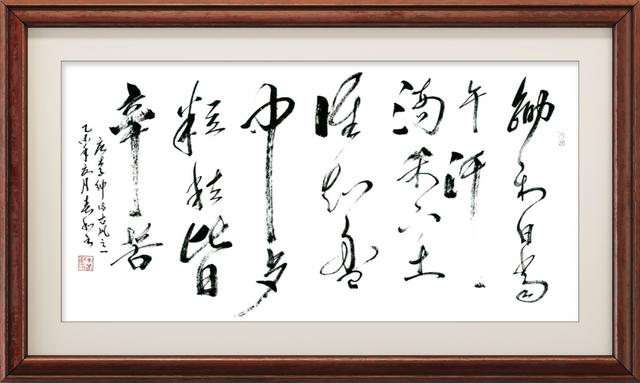 锄禾日当
午汗
滴禾下土
谁知盘
中
粒粒皆
辛苦
唐李绅诗古风之一
乙未年